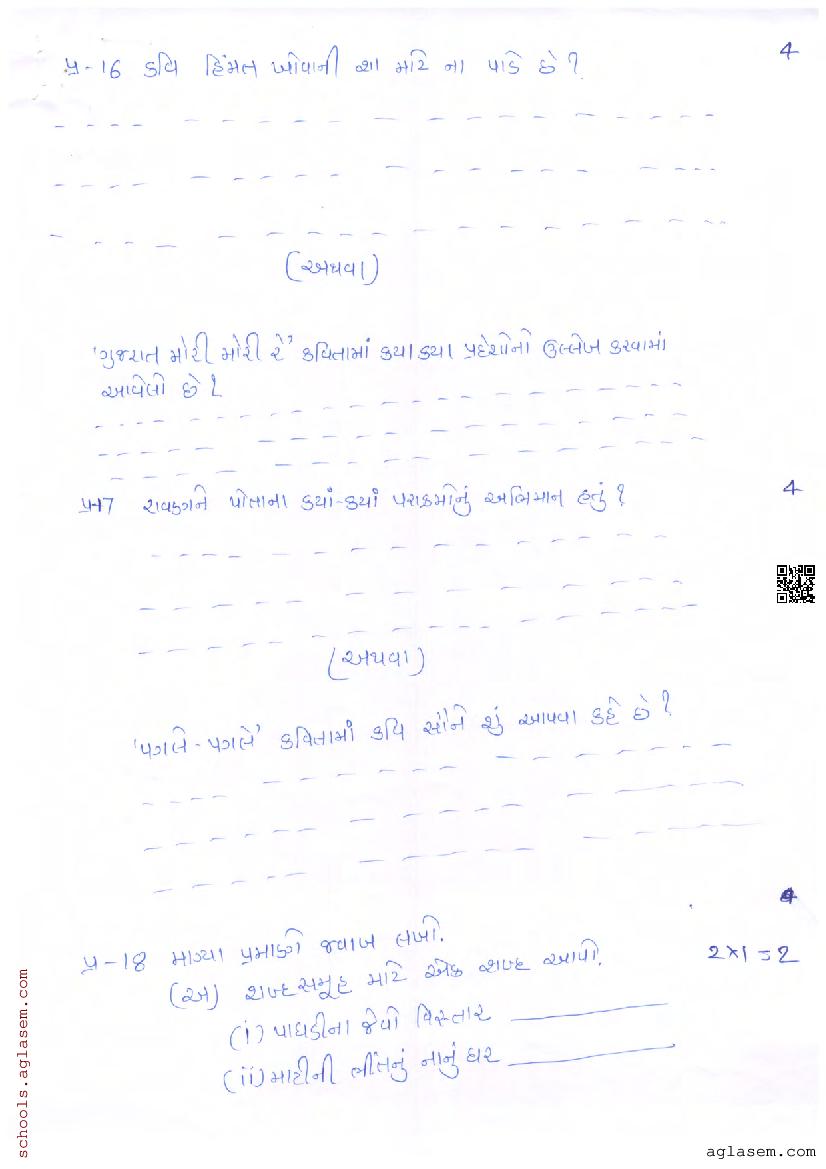 પ્ર-16 કવિ હિંમત ખોવાની શા માટે ના પાડે છે? 4
(અથવા)
'ગુજરાત મોરી મોરી રે' કવિતામાં કયા કયા પ્રદેશોનો ઉલ્લેખ કરવામાં
આવેલો છે?
પ્ર-17 રાવણને પોતાના કયાં-કયાં પરાક્રમોનું અભિમાન હતું? 4
(અથવા)
'પગલે-પગલે' કવિતામાં કવિ સૌને શું આપવા કહે છે?
4
પ્ર-18 માગ્યા પ્રમાણે જવાબ લખો.
(અ) શબ્દસમૂહ માટે એક શબ્દ આપો. 2×1=2
(i) પાઘડીના જેવો વિસ્તાર
(ii) માટીની ભીંતનું નાનું ઘર
schools.aglasem.com
aglasem.com